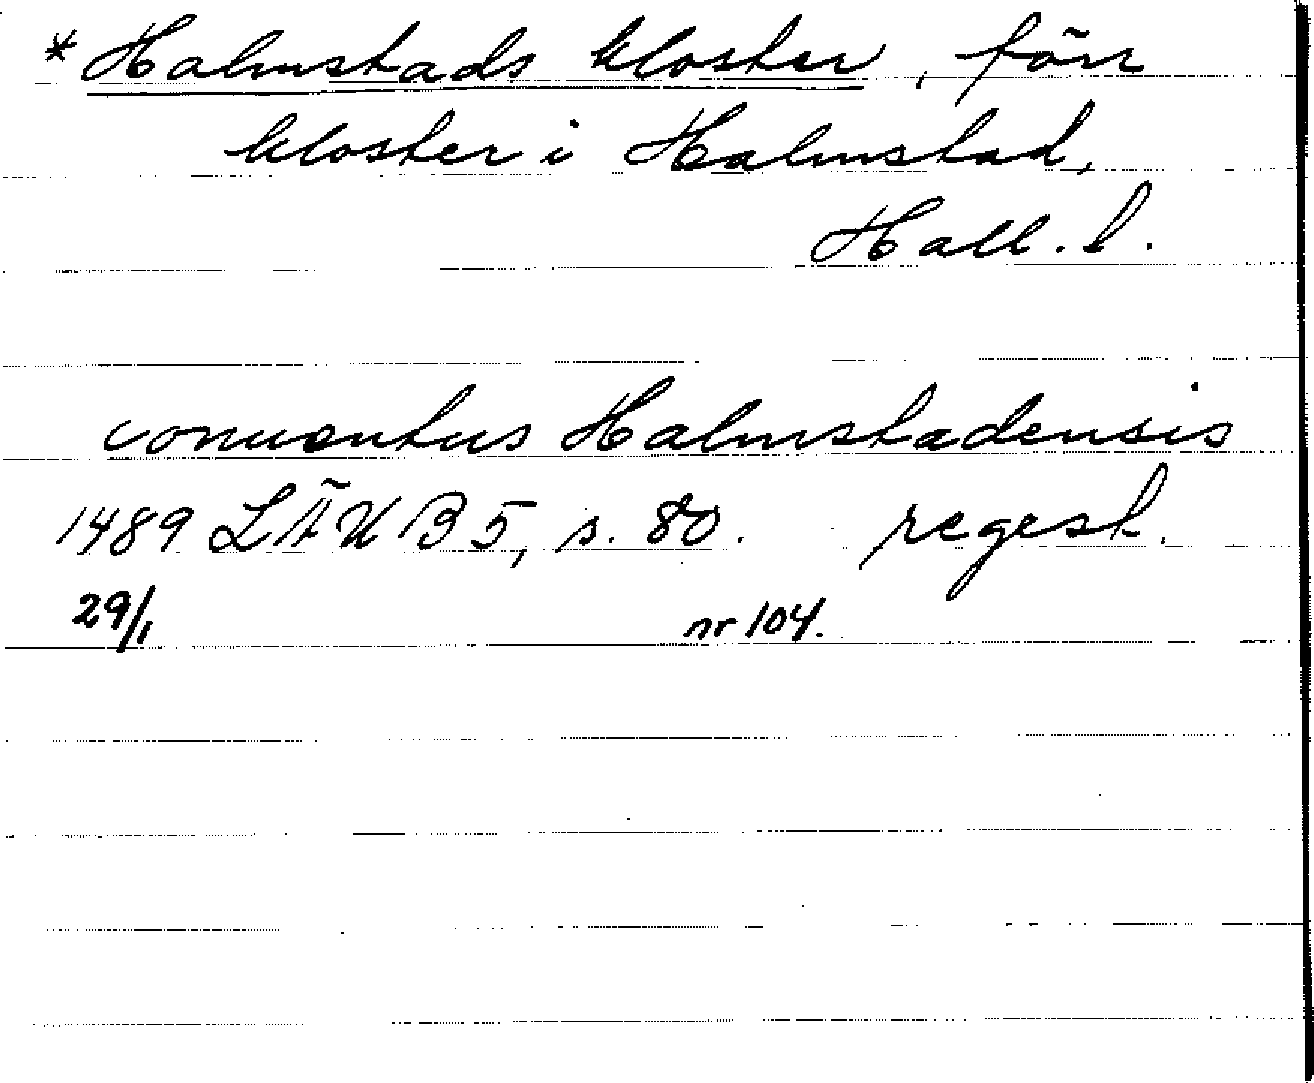 *Halmstads kloster, förr
kloster i Halmstad,
Hall. l.
conuentus Halmstadensis
1489 LÄUB 5, s. 80. regest.
29/1 nr 104.